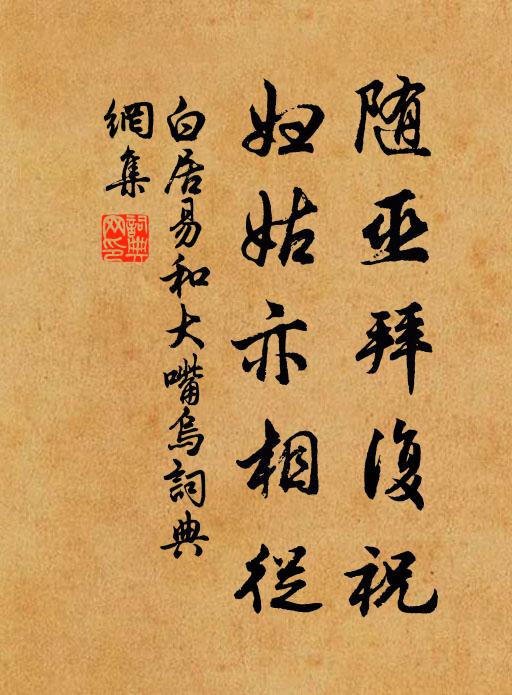 随巫拜復祝
妇姑亦相從
白居易和大嘴烏詞典
網集
詞典
网印